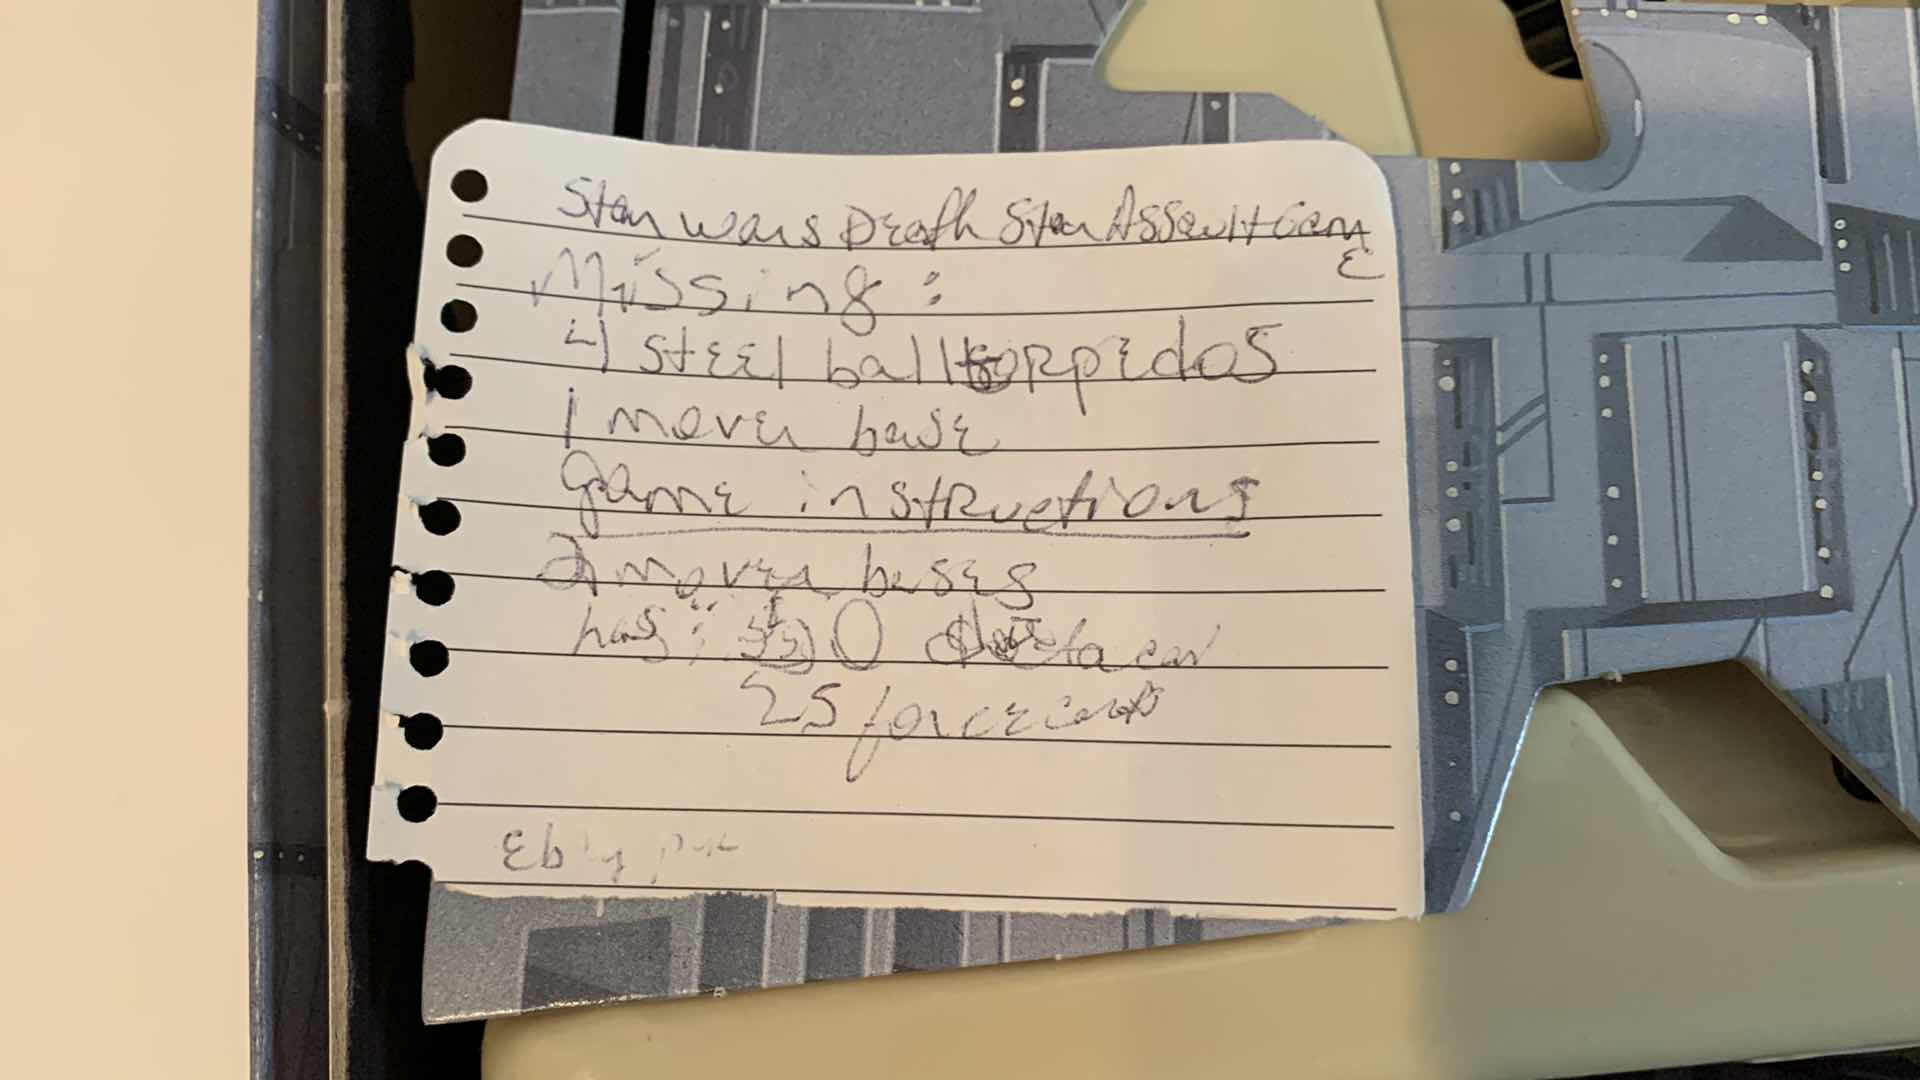 Star Wars Death Star Assault Game
Missing:
4 steel ball torpedos
1 mover base
game instructions
2 mover bases
has:
25 force cards